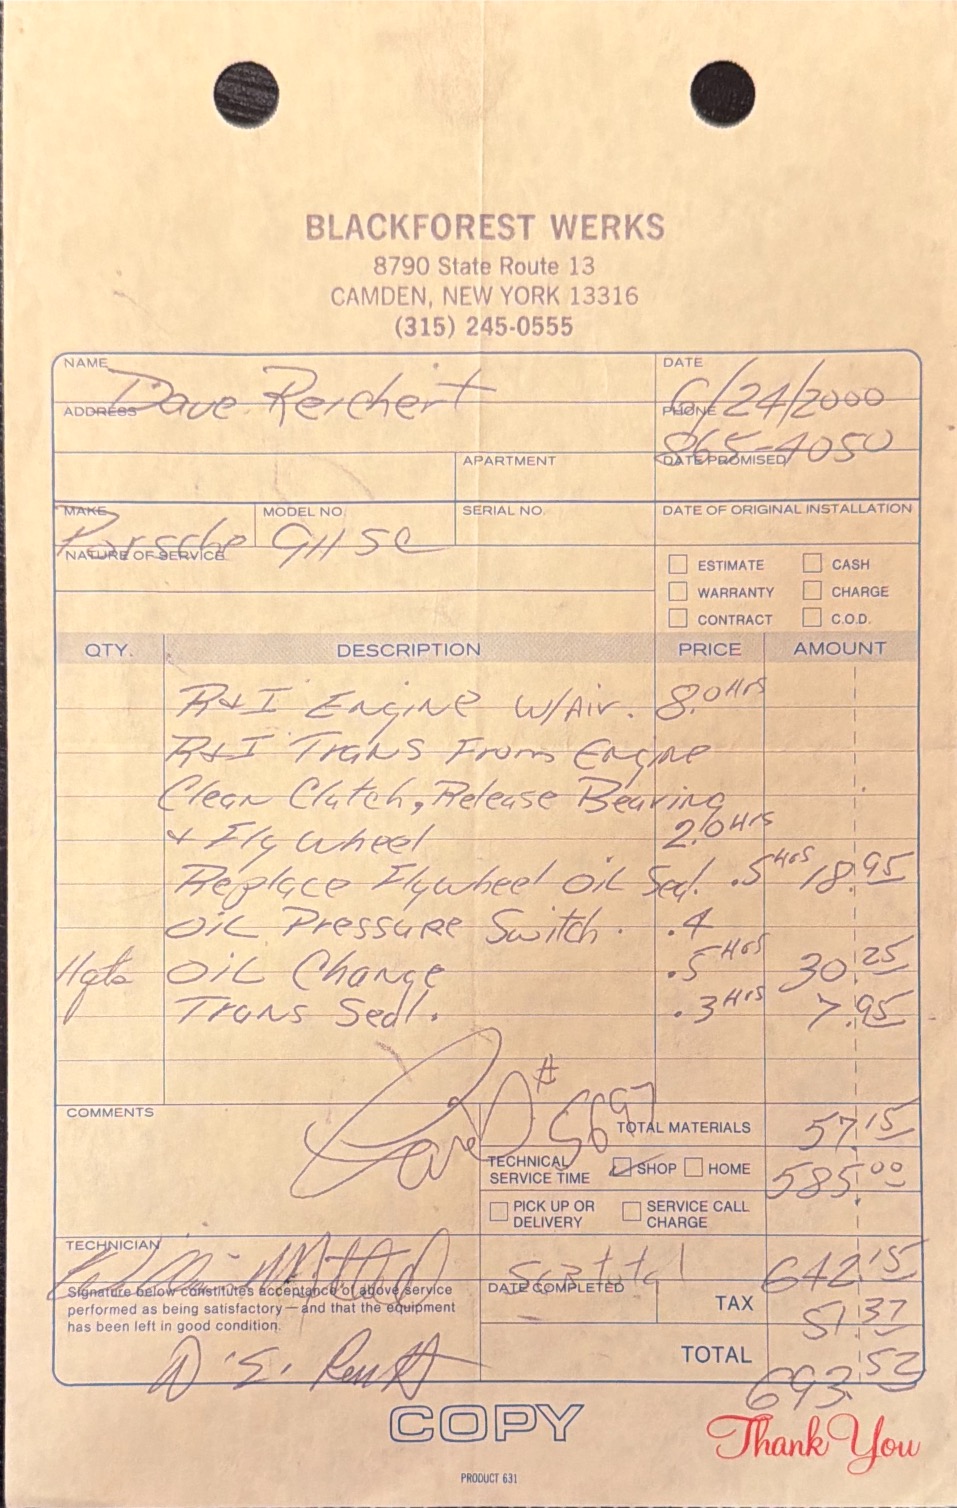 BLACKFOREST WERKS
8790 State Route 13
CAMDEN, NEW YORK 13316
(315) 245-0555
NAME Dave Reichert DATE 6/24/2000
ADDRESS PHONE 865-4050
APARTMENT DATE PROMISED
MAKE Porsche MODEL NO. 911 SC SERIAL NO. DATE OF ORIGINAL INSTALLATION
NATURE OF SERVICE
ESTIMATE CASH
WARRANTY CHARGE
CONTRACT C.O.D.
QTY. DESCRIPTION PRICE AMOUNT
R&I Engine W/Air. 8.0 Hrs
R&I Trans From Engine
Clean Clutch, Release Bearing
& Flywheel 2.0 Hrs
Replace Flywheel Oil Seal. .5 Hrs 18.95
Oil Pressure Switch. .4
11qts Oil Change .5 Hrs 30.25
Trans Seal. .3 Hrs 7.95
# 5697
COMMENTS TOTAL MATERIALS 57.15
TECHNICAL SERVICE TIME SHOP HOME 585.00
PICK UP OR DELIVERY SERVICE CALL CHARGE
TECHNICIAN
Subtotal 642.15
DATE COMPLETED
TAX 51.37
Signature below constitutes acceptance of above service
performed as being satisfactory — and that the equipment
has been left in good condition.
TOTAL 693.52
COPY
Thank You
PRODUCT 631